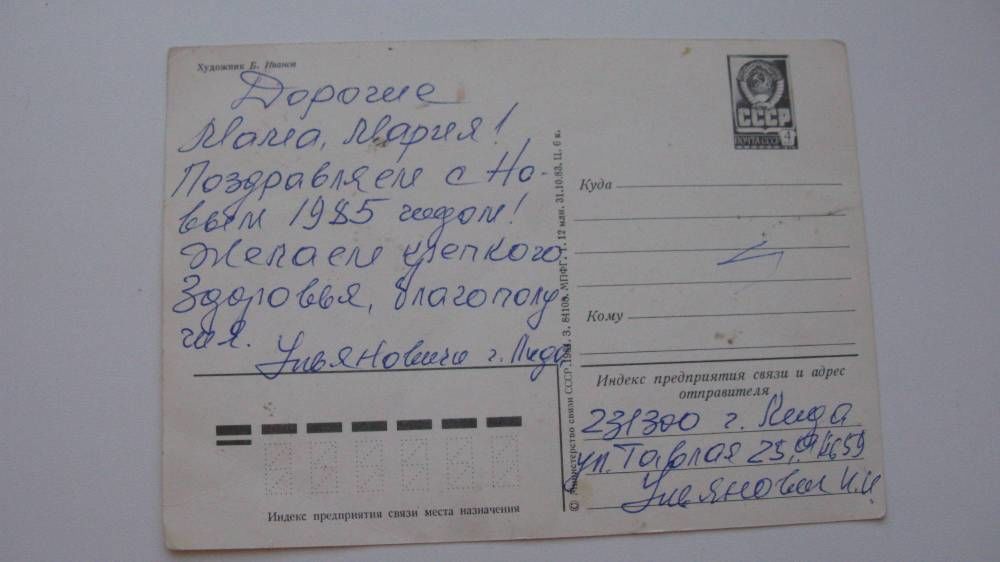 Художник Б. Иванов
Дорогие
Мама, Мария!
Поздравляем с Но-
вым 1985 годом!
Желаем крепкого
Здоровья, благополу
чия.
Ульяновичи г. Лида
СССР
ПОЧТА СССР
4
Куда
Кому
Индекс предприятия связи и адрес
отправителя
231300 г. Лида
ул. Тавлая 25,
Ульянович И.И
Индекс предприятия связи места назначения
© Министерство связи СССР. З. 84108. МПФГ. Т. 12 млн. 31.10.83. Ц. 6 к.